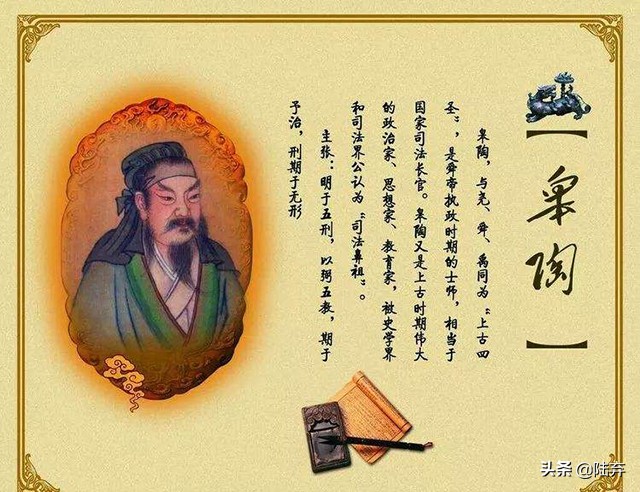 【皋陶】
皋陶,与尧、舜、禹同为“上古四
圣”,是舜帝执政时期的士师,相当于
国家司法长官。皋陶又是上古时期伟大
的政治家、思想家、教育家,被史学界
和司法界公认为“司法鼻祖”。
主张:明于五刑,以弼五教,期于
予治,刑期于无形
头条 @陆弃